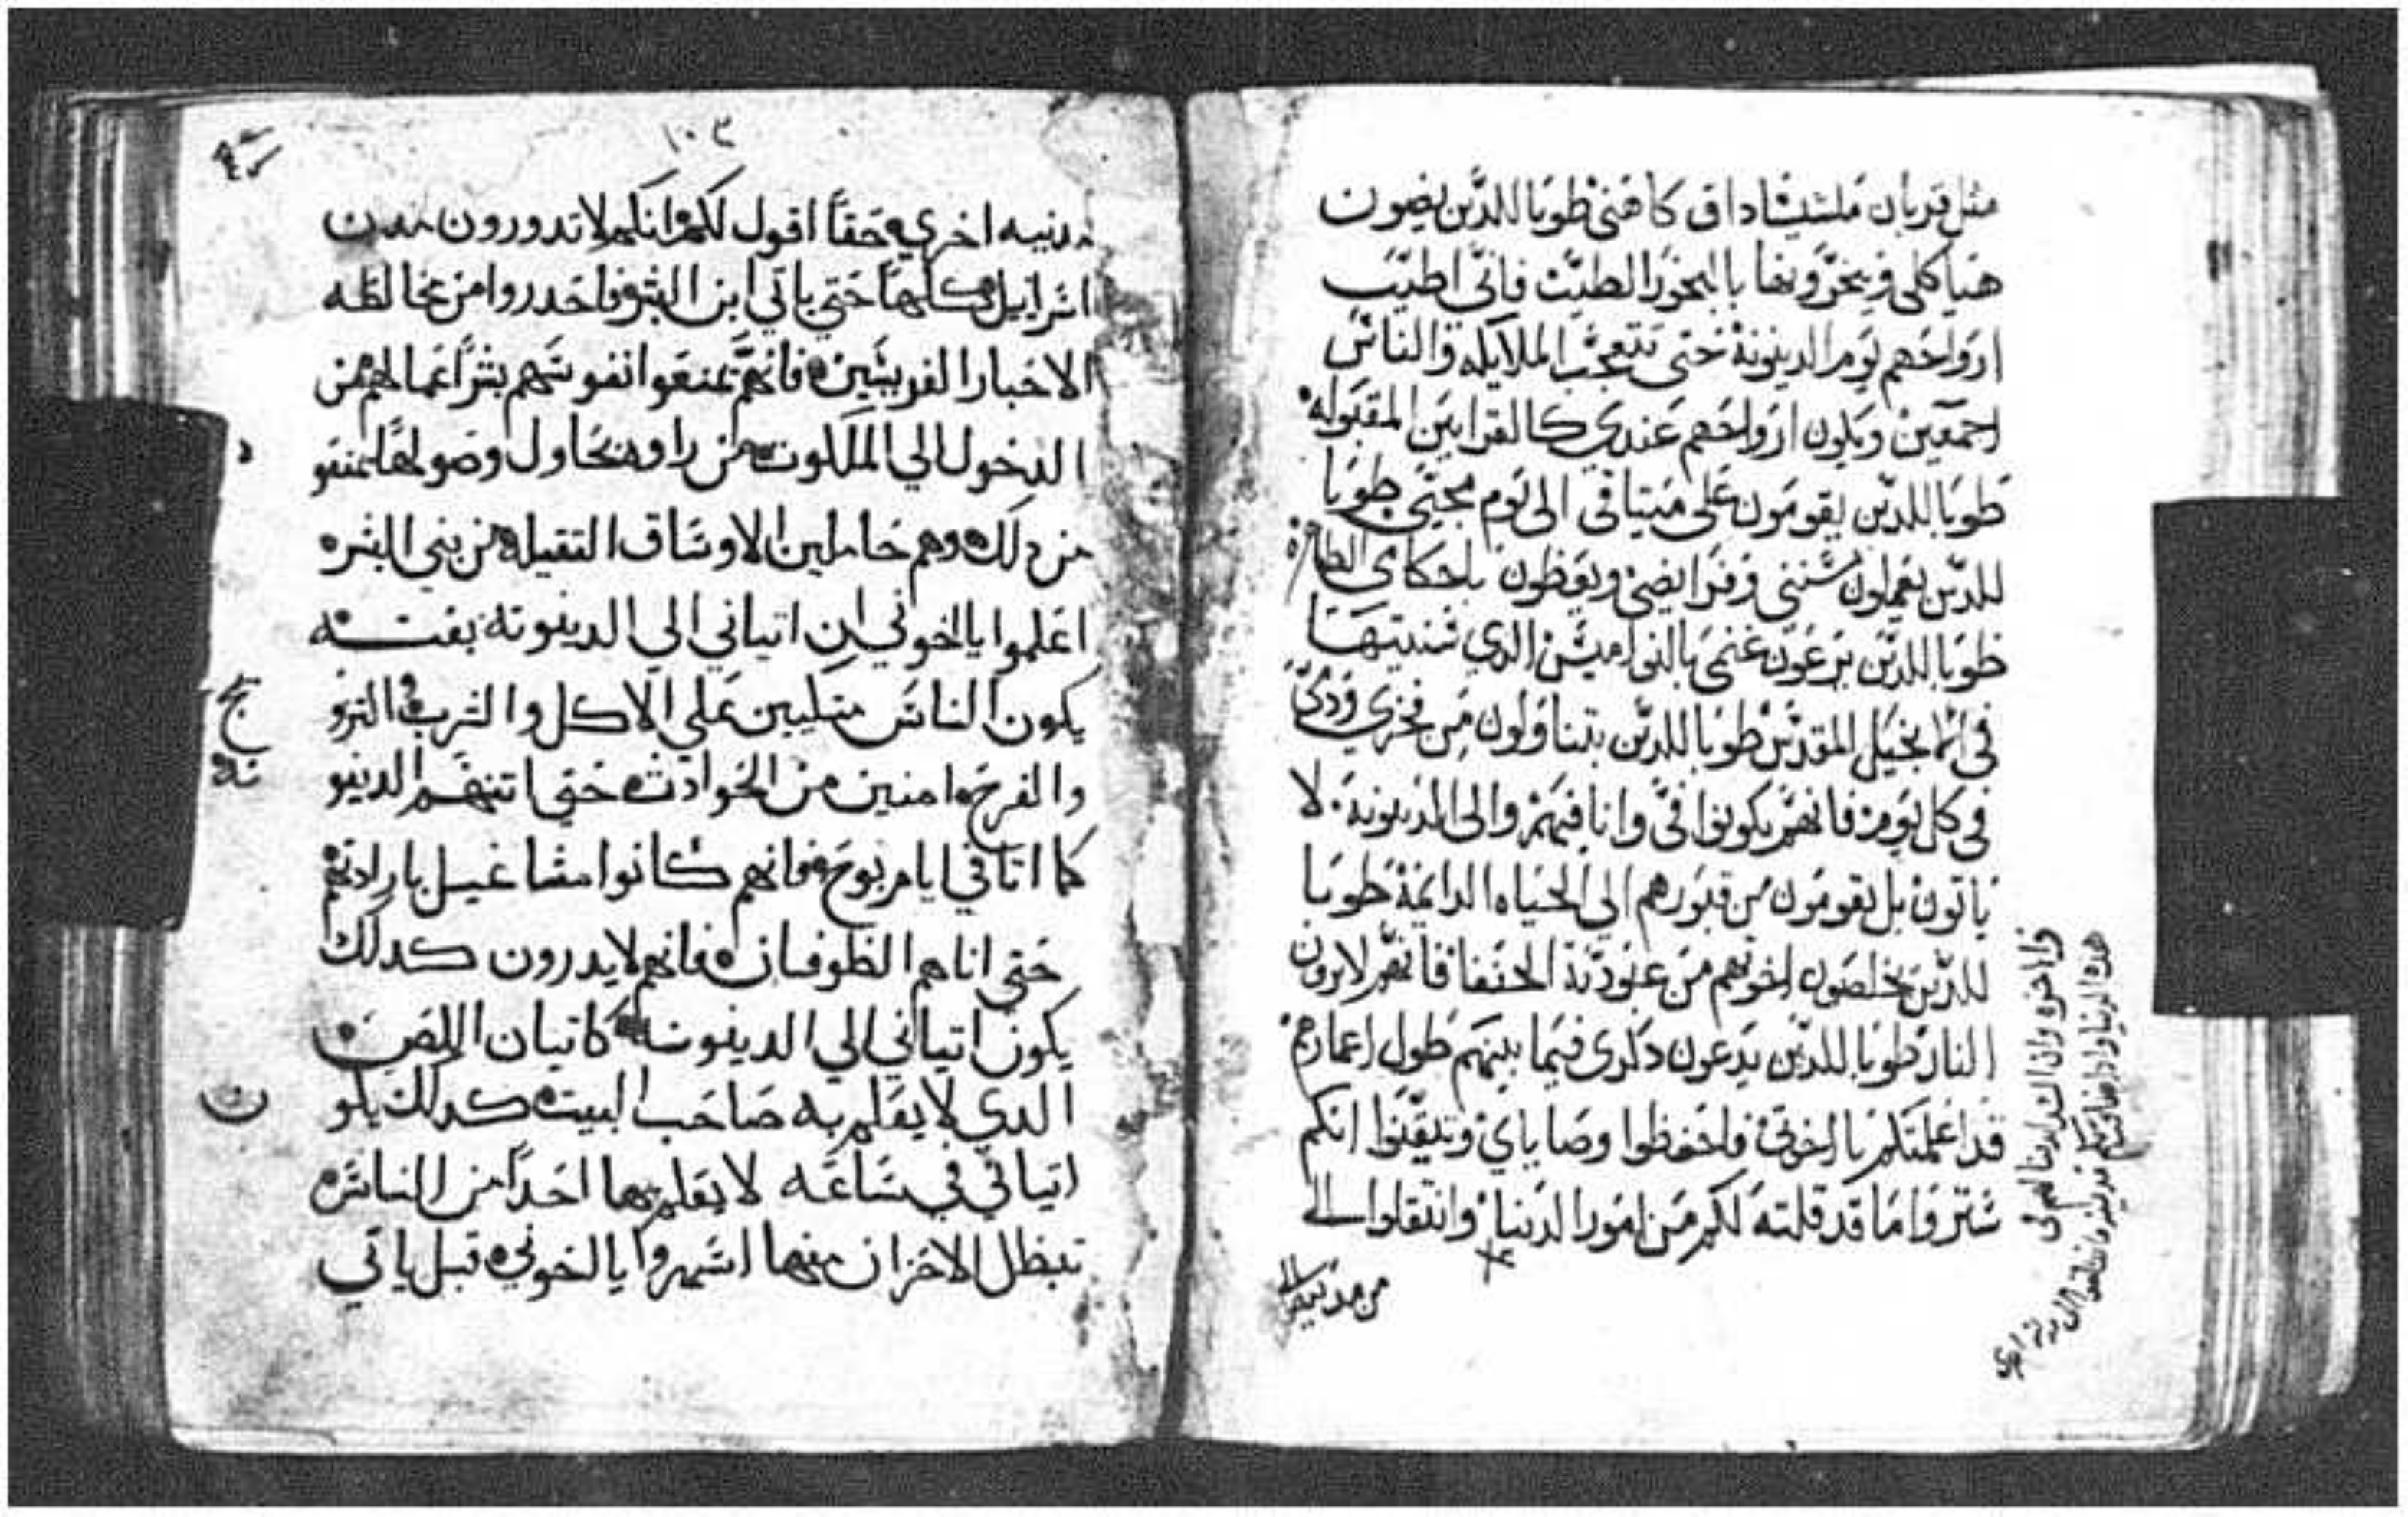 مثل قربان ملشيشاداق كاهني طوبا للدين يضون
هياكلي ويبخرونها بالبخور الطيب فاني اطيب
ارواحهم يوم الدينونة حتى تتعجب الملايكه والناس
اجمعين ويكون ارواحهم عندي كالقرابين المقبوله
طوبا للدين يقومون على ميتاقي الى يوم مجيي طوبا
للدين يعملون سنني وفرايضي ويعظون باحكامي الطاهره
طوبا للدين يرعون غنمي بالنواميس الدي سنيتها
في انجيل المقدس طوبا للدين يتناولون من فخري ودمي
في كل يوم فانهم يكونوا في وانا فيهم والى الدينونة لا
ياتون بل يقومون من قبورهم الى الحياه الدايمة طوبا
للدين يخلصون اخوتهم من عبودية الحنفا فانهم لا يرون
النار طوبا للدين يدعون دكري فيما بينهم طول اعمارهم
قد اعلمتكم يا اخوتي فاحفظوا وصاياي وتيقنوا انكم
ستروا ما قد قلته لكم من امور الدنيا وانتقلوا الى
من مدينه الى
١٠٣
مدينه اخري وحقاً اقول لكم انكم لا تدورون مدن
اسراييل كلها حتي ياتي ابن البشر فاحدروا من مخالطه
الاحبار الفريسين فانهم يمنعوا نفوسهم بشر اعمالهم من
الدخول الي الملكوت من راوه يحاول وصولها يمنعو
من دلك وهم حاملين الاوساق التقيله من بني البشر
اعلموا يا اخوتي ان اتياني الي الدينونة بغته
يكون الناس متكيين علي الاكل والشرب التزو
والفرح امنين من الحوادث حتي اتتهم الدينو
كما اتا في ايام نوح فانهم كانوا مشاغيل بارادتهم
حتي اتاهم الطوفان فانهم لا يدرون كدلك
يكون اتياني الي الدينونه كاتيان اللص
الدي لا يعلم به صاحب البيت كدلك يكو
اتياني في ساعه لا يعلم بها احداً من الناس
تبطل الاحزان منها اسهروا يا اخوتي قبل ياتي